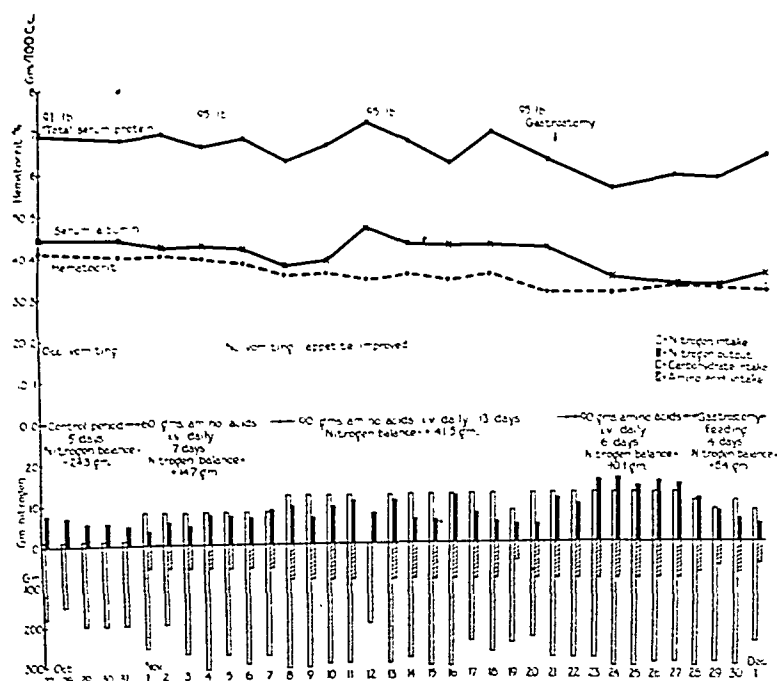 Gm/100 Cc
Hematocrit %
8
7
6
50.5
40.4
30.3
20.2
10.1
0.0
91 lb
95 lb
95 lb
95 lb
Total serum protein
Gastrostomy
Serum albumin
Hematocrit
Occ. vomiting
No vomiting appetite improved
Nitrogen intake
Nitrogen output
Carbohydrate intake
Amino acid intake
Control period
5 days
Nitrogen balance=
60 gms amino acids
i.v. daily
7 days
Nitrogen balance=
+14.7 gm
90 gms amino acids i.v. daily 13 days
Nitrogen balance= +41.5 gm
90 gms amino acids
i.v. daily
6 days
Nitrogen balance=
Gastrostomy
feeding
4 days
Nitrogen balance=
Gm nitrogen
20
10
0
Gm
100
200
300
Oct
29 30 31
Nov
1 2 3 4 5 6 7 8 9 10 11 12 13 14 15 16 17 18 19 20 21 22 23 24 25 26 27 28 29 30
Dec
1